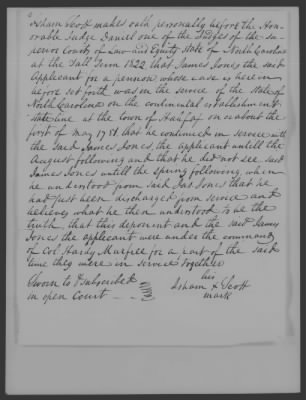 Isham Scott makes oath personally before the Hon-
orable Judge Daniel one of the Judges of the Su-
perior Courts of Law and Equity State of North Carolina
at the Fall Term 1822 that James Jones the said
Applicant for a pension whose case is herein
before set forth was in the service of the State of
North Carolina on the continental establishment &
State line at the town of Halifax on or about the
first of May 178 that he continued in service with
the said James Jones, the applicant untill the
August following and that he did not see said
James Jones untill the spring following when
he understood from said Jas Jones that he
had just been discharged from service and
believes what he then understood to be the
truth, that this deponent and the said James
Jones the applicant were under the command
of Col. Hardy Murfree for a part of the said
time they were in service together
Sworn to & subscribed
in open Court
his
Isham x Scott
mark